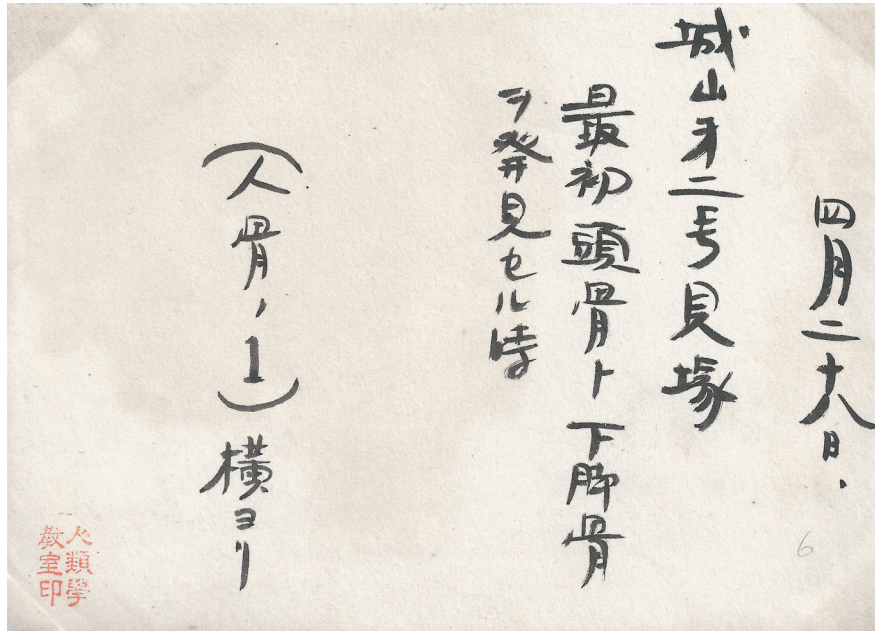 四月二十八日、
城山才二号貝塚
最初頭骨ト下脚骨
ヲ発見セル時
（人骨ノ1）横ヨリ
6
人類學
教室印